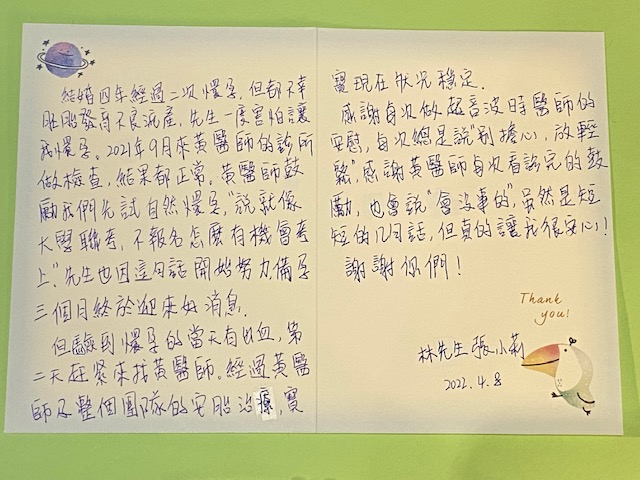 結婚四年經過二次懷孕，但都不幸
胚胎發育不良流產，先生一度害怕讓
我懷孕。2021年9月來黃醫師的診所
做檢查，結果都正常，黃醫師鼓
勵我們先試自然懷孕，"說就像
大學聯考，不報名怎麼有機會考
上"先生也因這句話開始努力備孕
三個月終於迎來好消息.
但驗到懷孕的當天有出血，第
二天趕緊來找黃醫師。經過黃醫
師及整個團隊的安胎治療，寶
寶現在狀況穩定.
感謝每次做超音波時醫師的
安慰，每次總是說"別擔心，放輕
鬆"，感謝黃醫師每次看診完的鼓
勵，也會說"會沒事的"，虽然是短
短的几句話，但真的讓我很安心！
謝謝你們！
Thank
you!
林先生 張小莉
2022.4.8